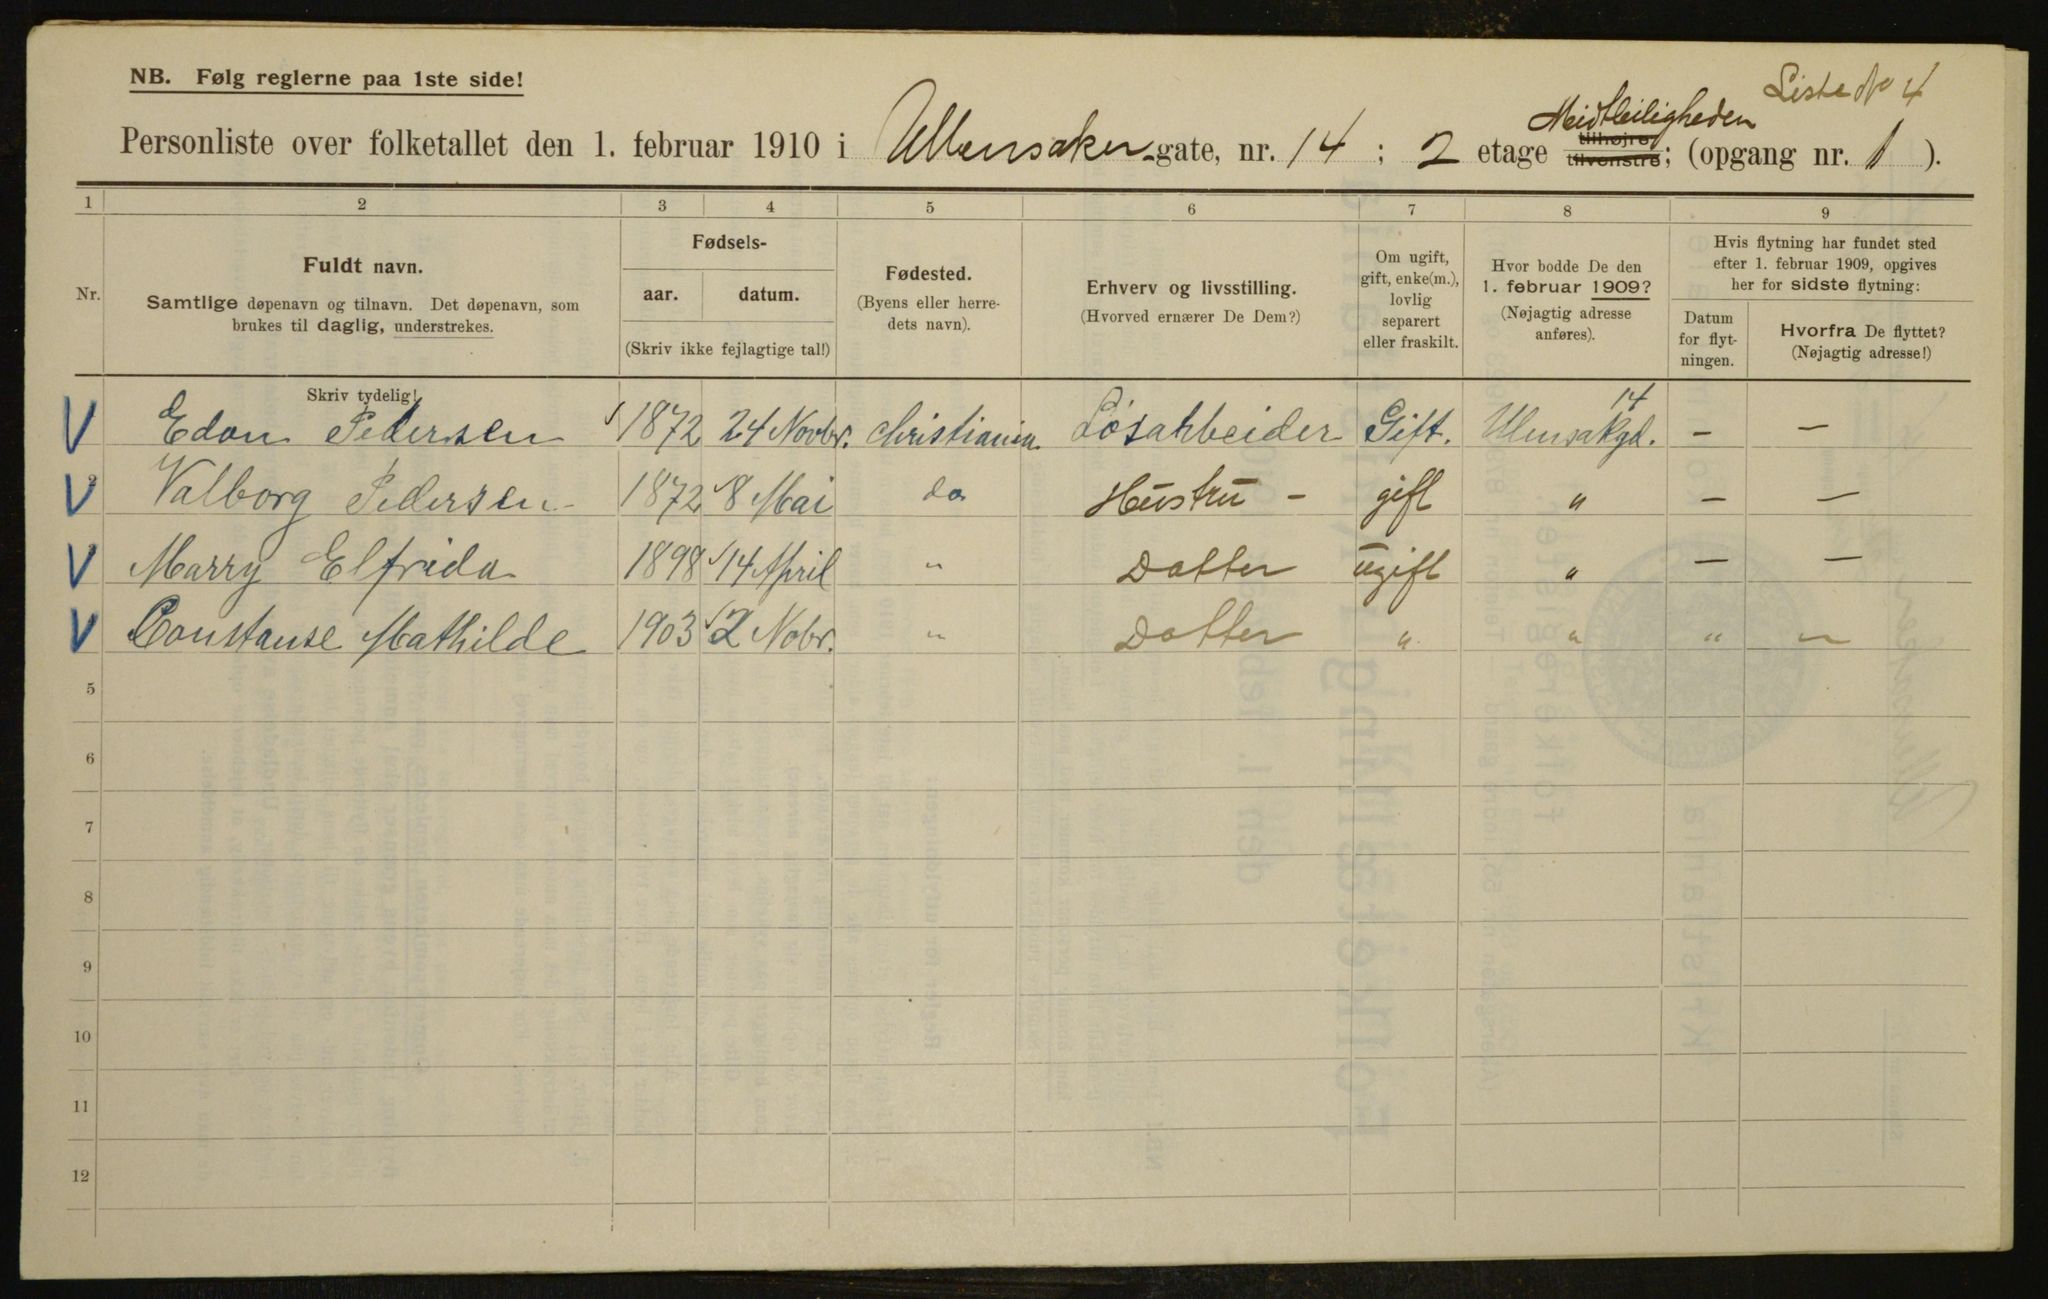 Liste No 4
NB. Følg reglerne paa 1ste side!
Midtleiligheden
Personliste over folketallet den 1. februar 1910 i Ullensaker-gate, nr. 14; 2 etage tilhøjre tilvenstre; (opgang nr. 1).
1 2 3 4 5 6 7 8 9
Nr.
Fuldt navn.
Samtlige døpenavn og tilnavn. Det døpenavn, som
brukes til daglig, understrekes.
Fødsels-
aar. datum.
(Skriv ikke fejlagtige tal!)
Fødested.
(Byens eller herre-
dets navn).
Erhverv og livsstilling.
(Hvorved ernærer De Dem?)
Om ugift,
gift, enke(m.),
lovlig
separert
eller fraskilt.
Hvor bodde De den
1. februar 1909?
(Nøjagtig adresse
anføres).
Hvis flytning har fundet sted
efter 1. februar 1909, opgives
her for sidste flytning:
Datum
for flyt-
ningen.
Hvorfra De flyttet?
(Nøjagtig adresse!)
Skriv tydelig!
14
V Edon Pedersen 1872 24 Novbr. Christiania Løsarbeider Gift. Ulensakgd. – –
V Valborg Pedersen 1872 8 Mai do Hustru – gift " – –
V Marry Elfrida 1898 14 April " Datter ugift " – –
V Constanse Mathilde 1903 2 Nobr. " Datter " " " "
5
6
7
8
9
10
11
12